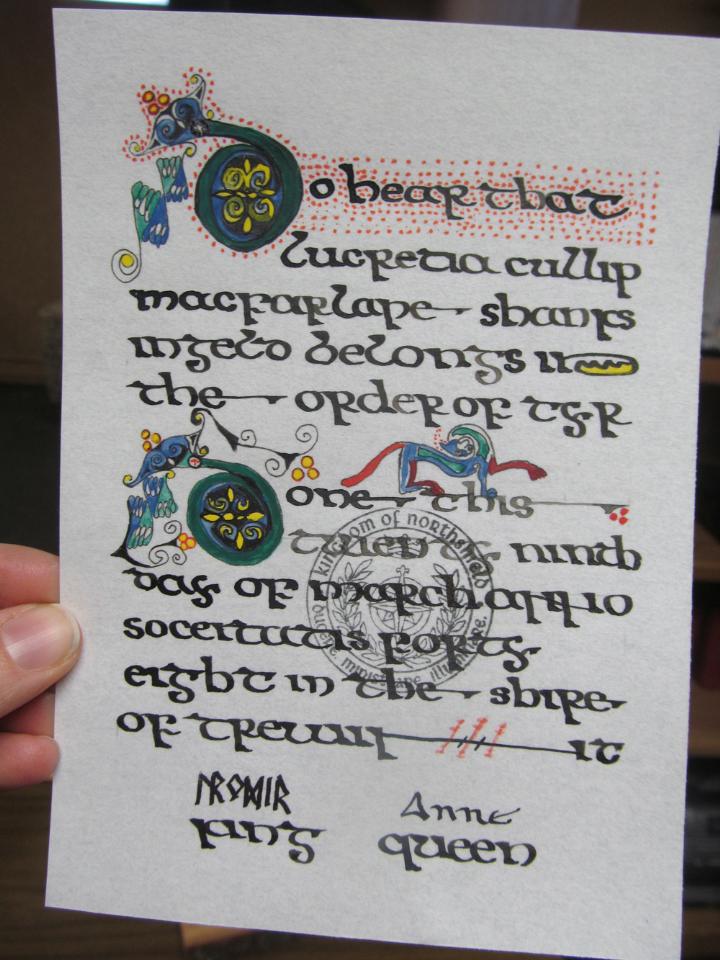 Do hear that
lucretia cullip
macfarlane shanks
ingeld belongs in
the order of tyr
Done this
twenty ninth
day of march anno
soceitatis forty
eight in the shire
of it
kingdom of northshield
Anne
king queen